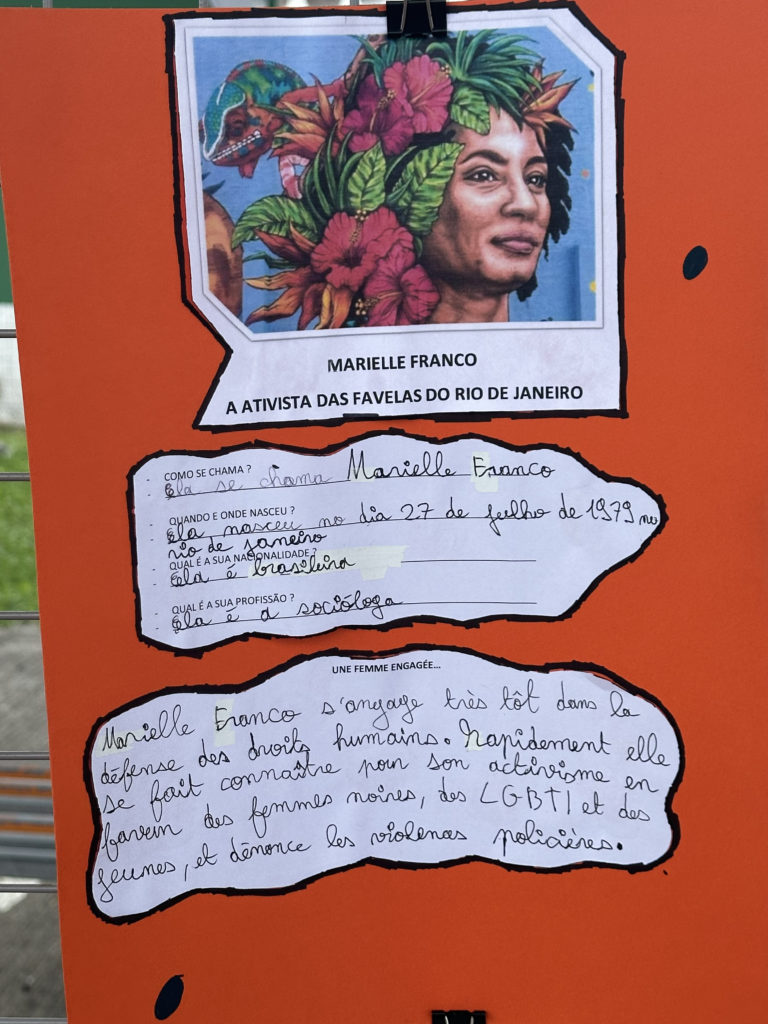 MARIELLE FRANCO
A ATIVISTA DAS FAVELAS DO RIO DE JANEIRO
- COMO SE CHAMA ?
Ela se chama Marielle Franco
- QUANDO E ONDE NASCEU ?
Ela nasceu no dia 27 de julho de 1979 no
rio de janeiro
- QUAL É A SUA NACIONALIDADE ?
Ela é brasileira
- QUAL É A SUA PROFISSÃO ?
Ela é a socióloga
UNE FEMME ENGAGÉE...
Marielle Franco s'engage très tôt dans la
défense des droits humains. Rapidement elle
se fait connaître pour son activisme en
faveur des femmes noires, des LGBTI et des
jeunes, et dénonce les violences policières.